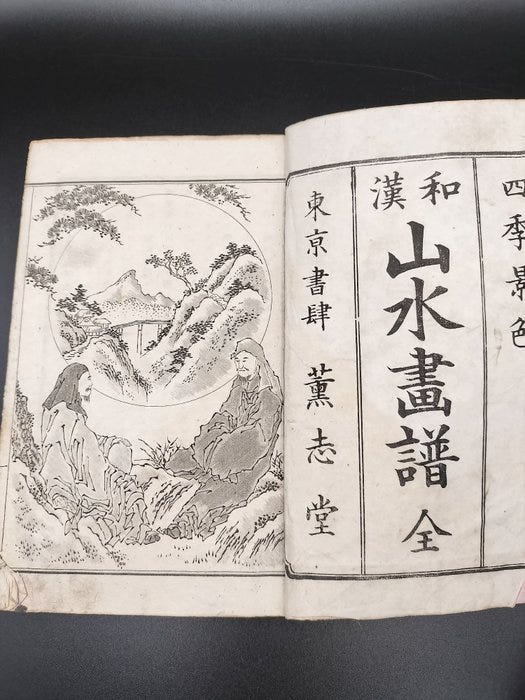 四季景色
和漢
山水畫譜 全
東京書肆 薫志堂